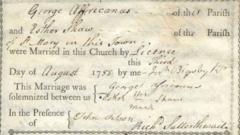 George Affricanus of the Parish
and Esther Shaw of the Parish
of St Mary in this Town
were Married in this Church by Licence
this Third
Day of August 1788 by me
This Marriage was George Affricanus
solemnized between us Esther Shaw
mark
In the Presence John
of